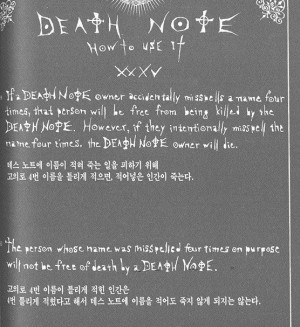 DEATH NOTE
How to use it
XXXV
If a DEATH NOTE owner accidentally misspells a name four
times, that person will be free from being killed by the
DEATH NOTE. However, if they intentionally misspell the
name four times. the DEATH NOTE owner will die.
데스 노트에 이름이 적혀 죽는 일을 피하기 위해
고의로 4번 이름을 틀리게 적으면, 적어넣은 인간이 죽는다.
The person whose name was misspelled four times on purpose
will not be free of death by a DEATH NOTE.
고의로 4번 이름이 틀리게 적힌 인간은
4번 틀리게 적혔다고 해서 데스 노트에 이름을 적어도 죽지 않게 되지는 않는다.